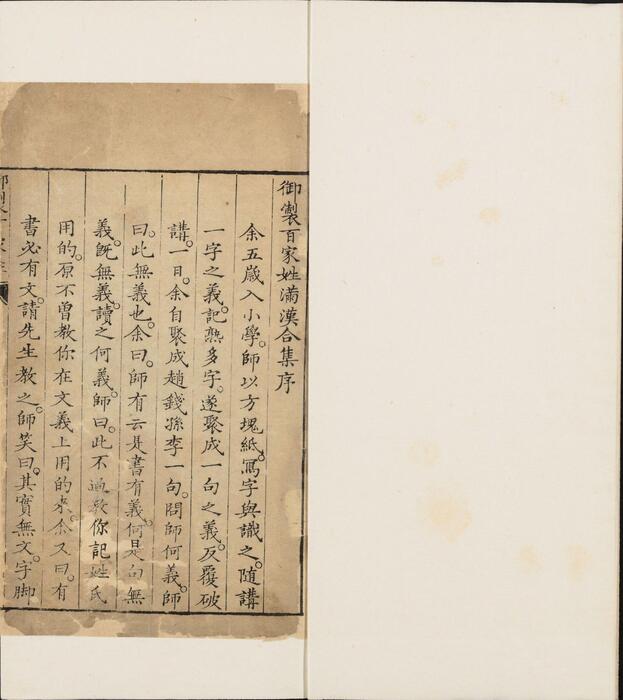 御製百家姓滿漢合集序
余五歲入小學。師以方塊紙。寫字與識之。隨講
一字之義。記熟多字。遂聚成一句之義。反覆破
講。一日。余自聚成趙錢孫李一句。問師何義。師
曰。此無義也。余曰。師有云是書有義。何是句無
義。既無義。讀之何義。師曰。此不過教你記姓氏
用的。原不曾教你在文義上用的來。余又曰。有
書必有文。請先生教之。師笑曰。其實無文。字脚